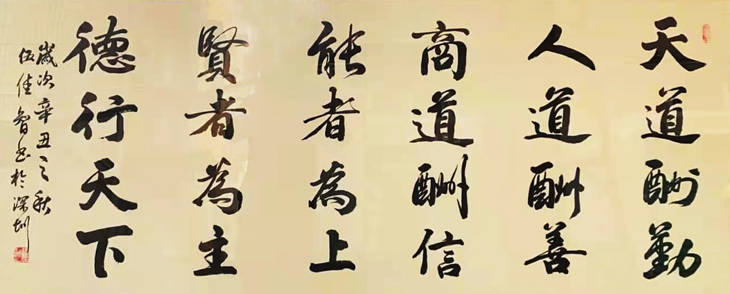 天道酬勤
人道酬善
商道酬信
能者為上
賢者為主
德行天下
歲次辛丑之秋
伍佳魯書於深圳